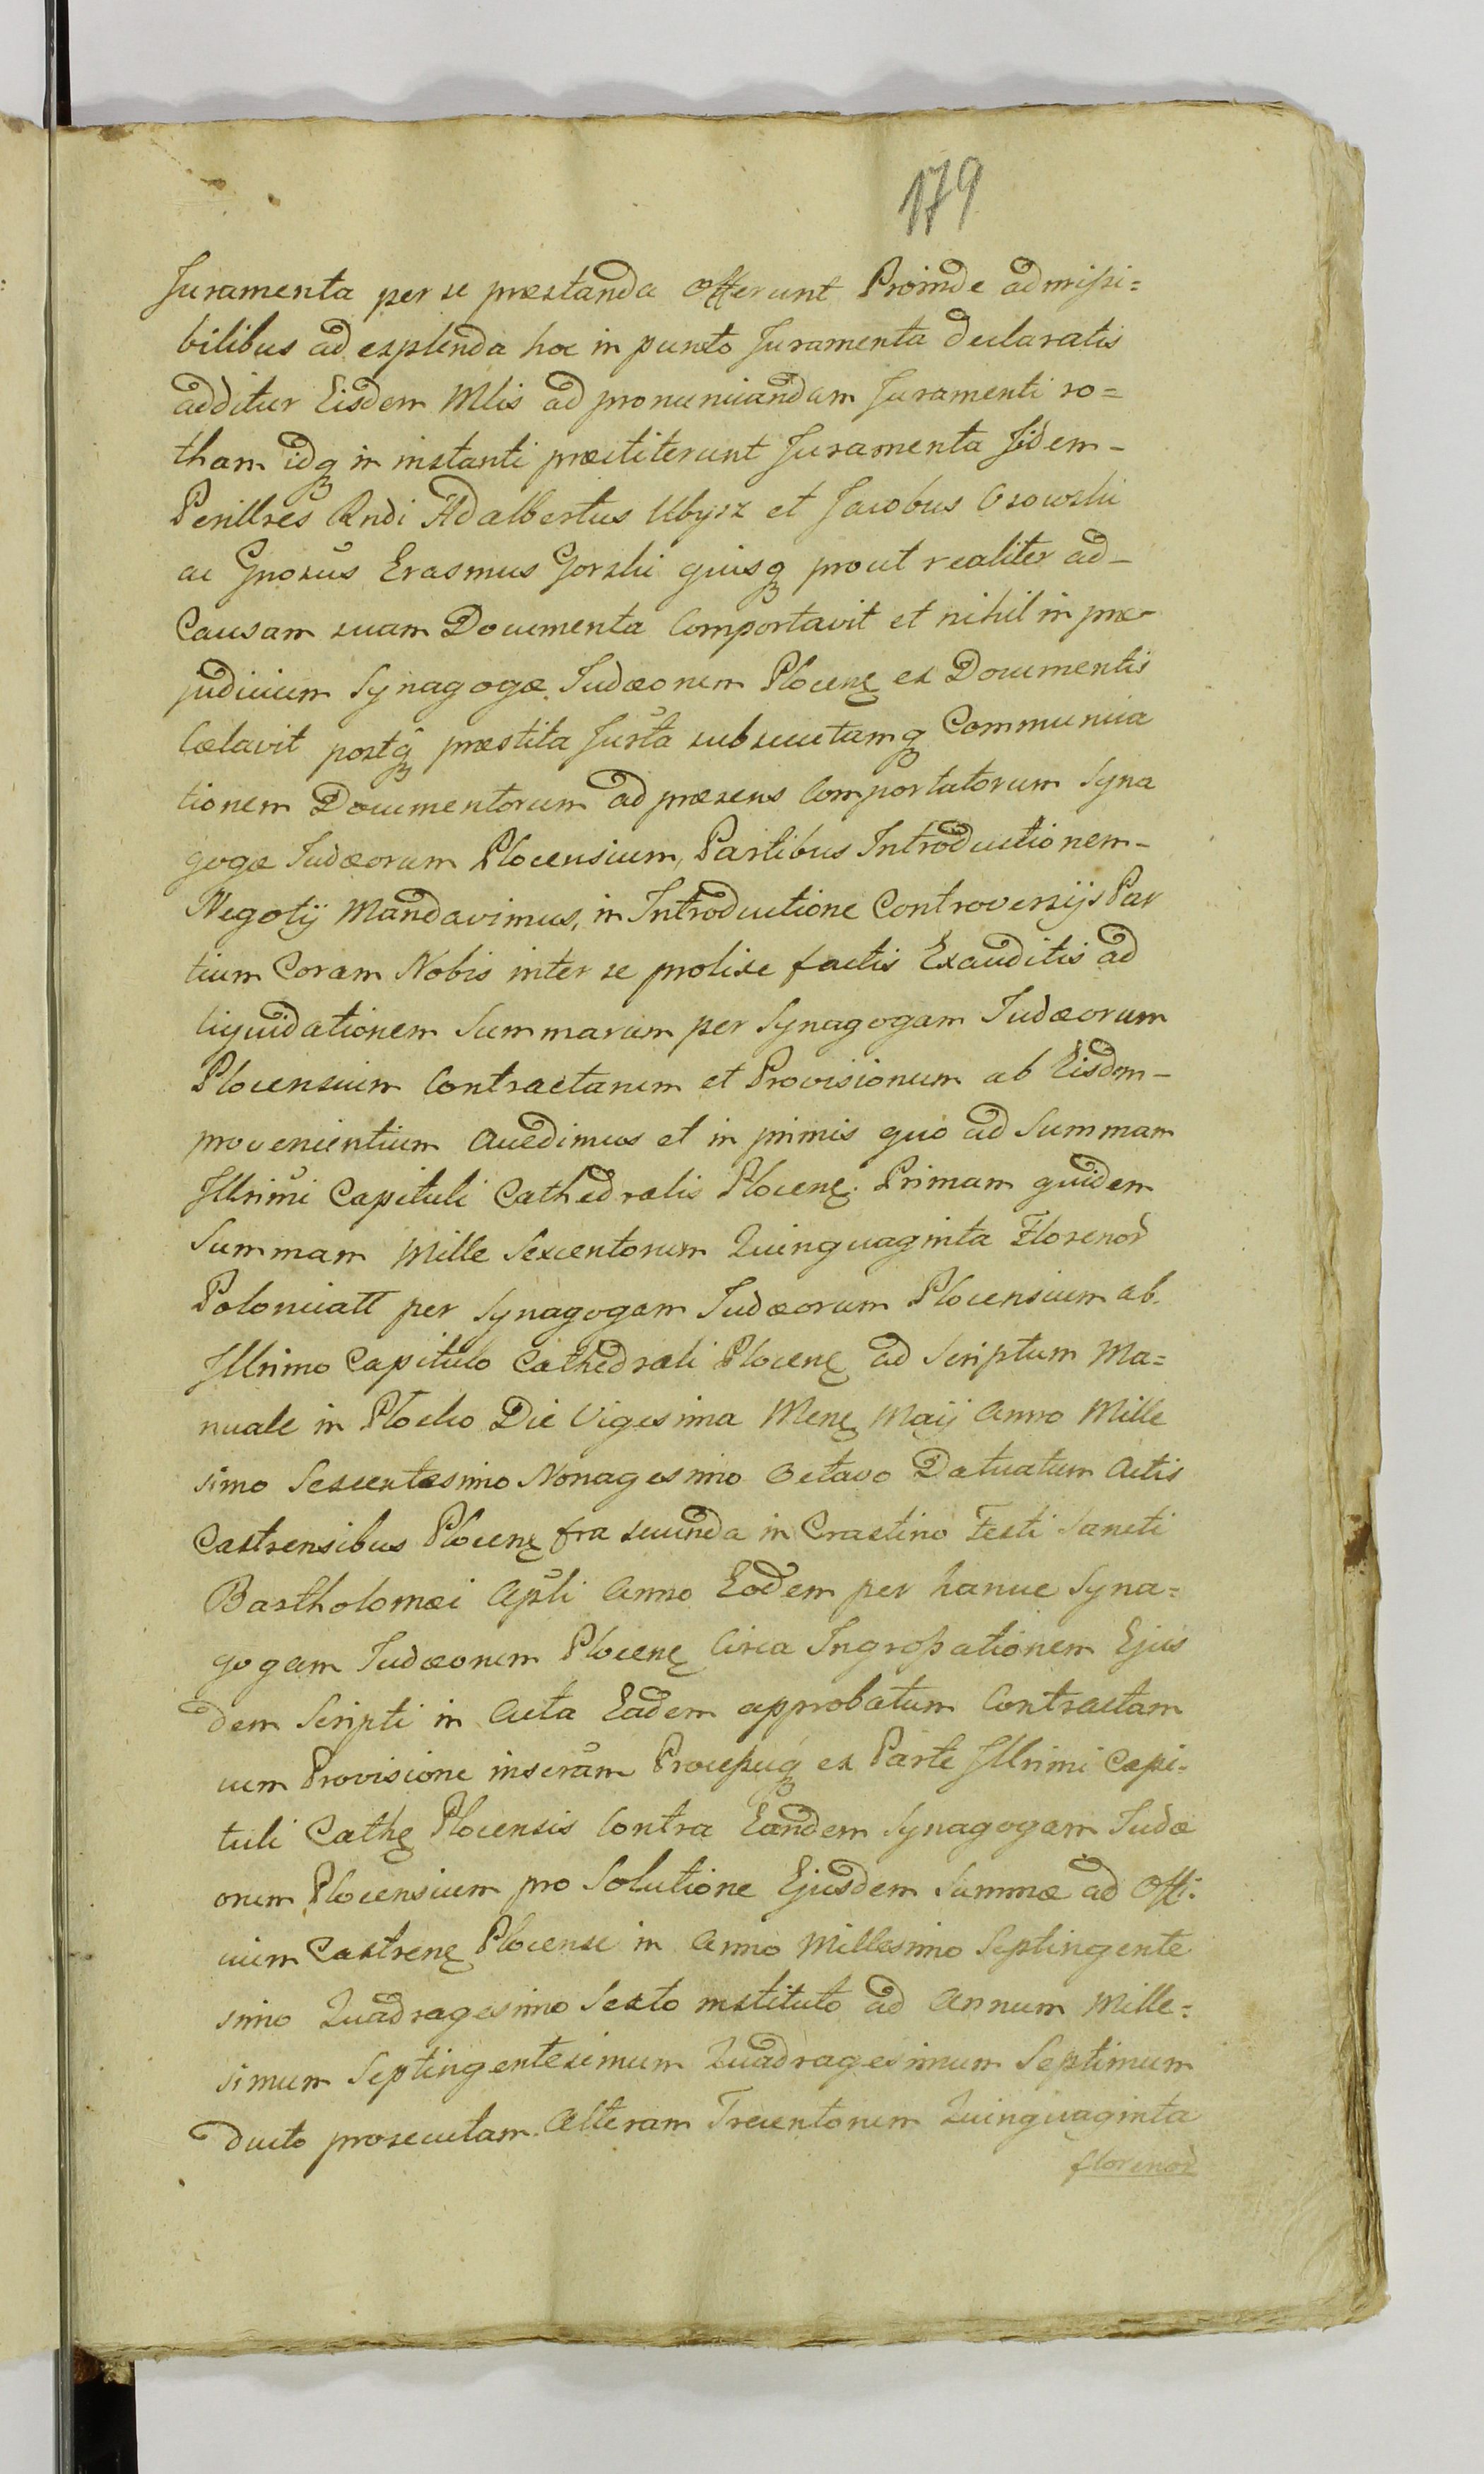 179
Juramenta per se præstanda Offerunt Proinde admissi=
bilibus ad explenda hoc in puncto Juramenta declaratis
additur Eisdem Mlis ad pronunciandam Juramenti ro=
tham idq in instanti præstiterunt Juramenta Jidem-
Perillres Rndi Adalbertus Ubysz et Jacobus Osowski
ac Gnosus Erasmus Gorski quisq prout realiter ad-
Causam suam Documenta Comportavit et nihil in præ
judicium Synagogæ Judæorum Plocenę ex Documentis
Celavit postq præstita Jurta subsecutamq Communica
tionem Documentorum ad præsens Comportatorum Syna
gogæ Judæorum Plocensium, Partibus Introductionem-
Negotij Mandavimus, in Introductione Controversijs Par
tium Coram Nobis inter se prolixe factis Exauditis ad
liquidationem Summarum per Synagogam Judæorum
Plocensium Contractarum et Provisionum ab Eisdem-
provenientium accedimus et in primis quo ad Summam
Jllrimi Capituli Cathedralis Plocenę. Primam quidem
Summam Mille Sexcentorum Quinquaginta Florenor
Polonicatt per Synagogam Judæorum Plocensium ab.
Jllrimo Capitulo Cathedrali Plocenę ad Scriptum Ma=
nuale in Plocko Die Vigesima Menę Maij Anno Mille
simo Sexcentesimo Nonagesimo Octavo Datuatum Actis
Castrensibus Plocenę fra secunda in Crastino Festi Sancti
Bartholomæi Apli Anno Eodem per hance Syna=
gogam Judæorum Plocenę Circa Ingrossationem Ejus
dem Scripti in Acta Eadem approbatum Contractam
cum Provisione inseram Processuq ex Parte Jllrimi Capi-
tuli Cathę Plocensis Contra Eandem Synagogam Judæ
orum Plocensium pro Solutione Ejusdem Summæ ad Offi:
cium Castrenę Plocense in Anno Millesimo Septingente
simo Quadragesimo Sexto instituto ad Annum Mille=
simum Septingentesimum Quadragesimum Septimum
Ducto prosecutam. Alteram Trecentorum Quinquaginta
florenor